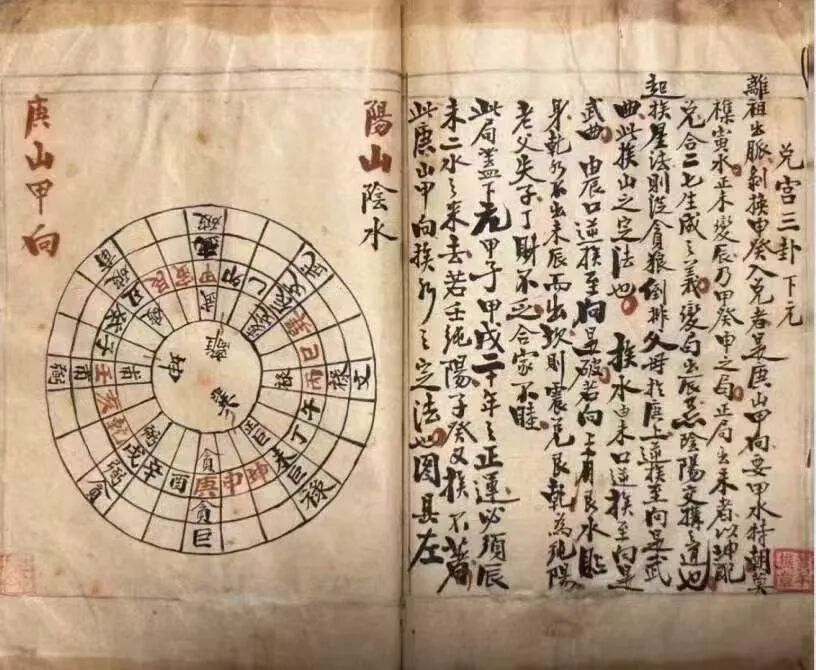 兑宫三卦下元
離祖出脈剝換申癸入兑者是庚山甲向要甲水特潮莫
寅水正未變辰乃甲癸申之局正局出未者以坤配
兑合二七生成之義變局出辰陰陽交媾之道也
起挨星法則從貪狼倒排父母於庚上逆挨至向是武
曲此挨山之定法也 挨水由未口逆挨至向是
武曲 由辰口逆挨至向是破若向上有艮水貼
身乾水不出未辰而出坎則震兑艮乾為純陽
老父失子丁財不乏合家不睦
此局蓋下元甲子甲戌二十年之正運必須辰
未二水之來去若壬純陽子癸又挨不著
此庚山甲向挨水之定法也圖具左
陽山陰水
庚山甲向
破
武
艮寅甲卯乙
巳丙午丁未坤申庚酉辛戌乾亥壬子癸丑
文
祿
巨
貪
弼